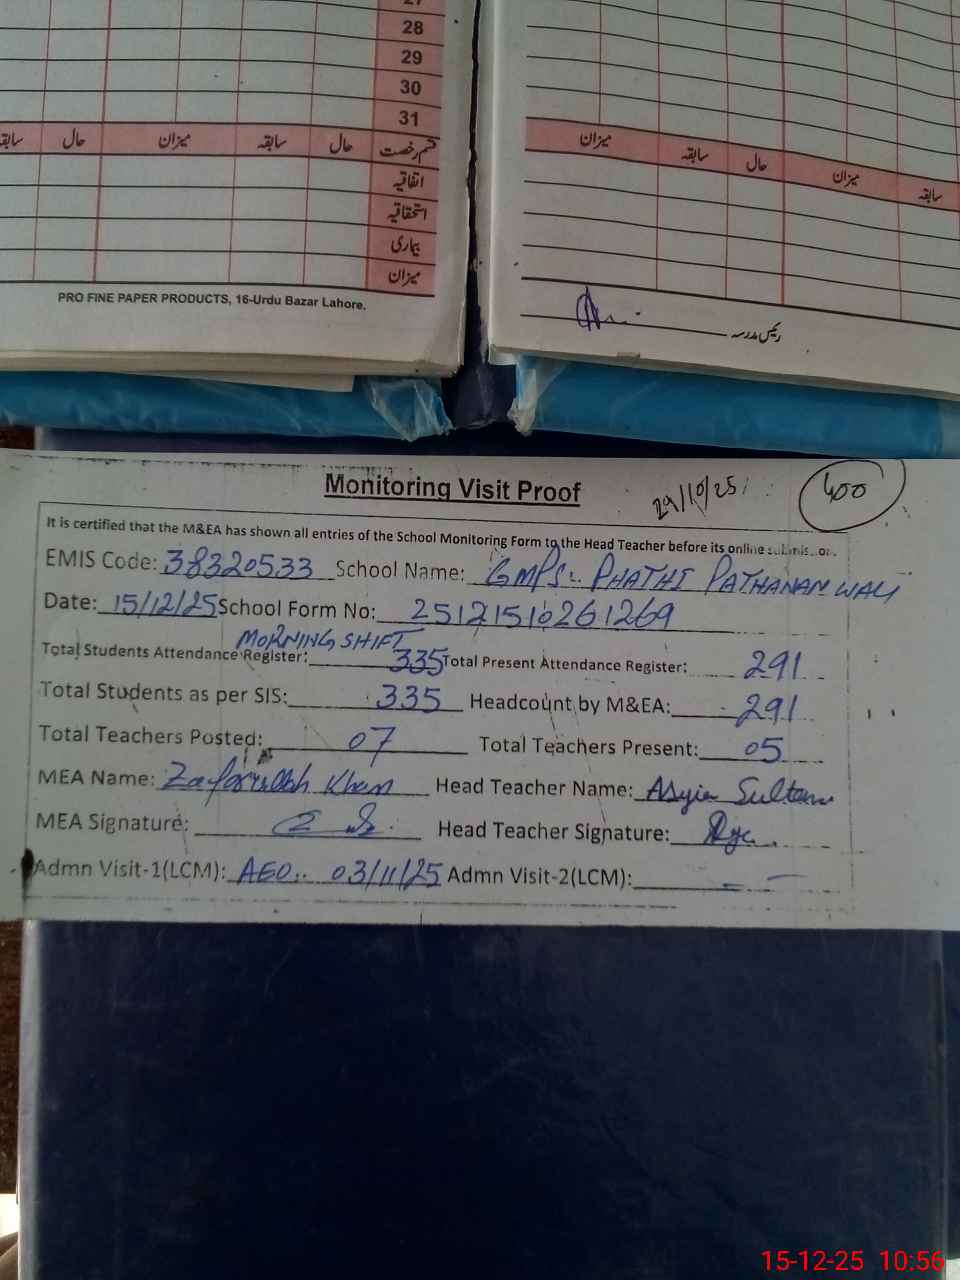 27
28
29
30
31
سابقہ حال میزان سابقہ حال قسم رخصت
اتفاقیہ
استحقاقیہ
بیماری
میزان
PRO FINE PAPER PRODUCTS, 16-Urdu Bazar Lahore.
میزان سابقہ حال میزان سابقہ
رئیس مدرسہ
Monitoring Visit Proof 29/10/25 400
It is certified that the M&EA has shown all entries of the School Monitoring Form to the Head Teacher before its online submis..on.
EMIS Code: 38320533 School Name: GMPS: PHATHI PATHANAN WALI
Date: 15/12/25 School Form No: 25121510261269
MORNING SHIFT
Total Students Attendance Register: 335 Total Present Attendance Register: 291
Total Students as per SIS: 335 Headcount by M&EA: 291
Total Teachers Posted: 07 Total Teachers Present: 05
MEA Name: Zafarullah Khan Head Teacher Name: Asyia Sultana
MEA Signature: Head Teacher Signature:
Admn Visit-1(LCM): AEO: 03/11/25 Admn Visit-2(LCM):
15-12-25 10:56